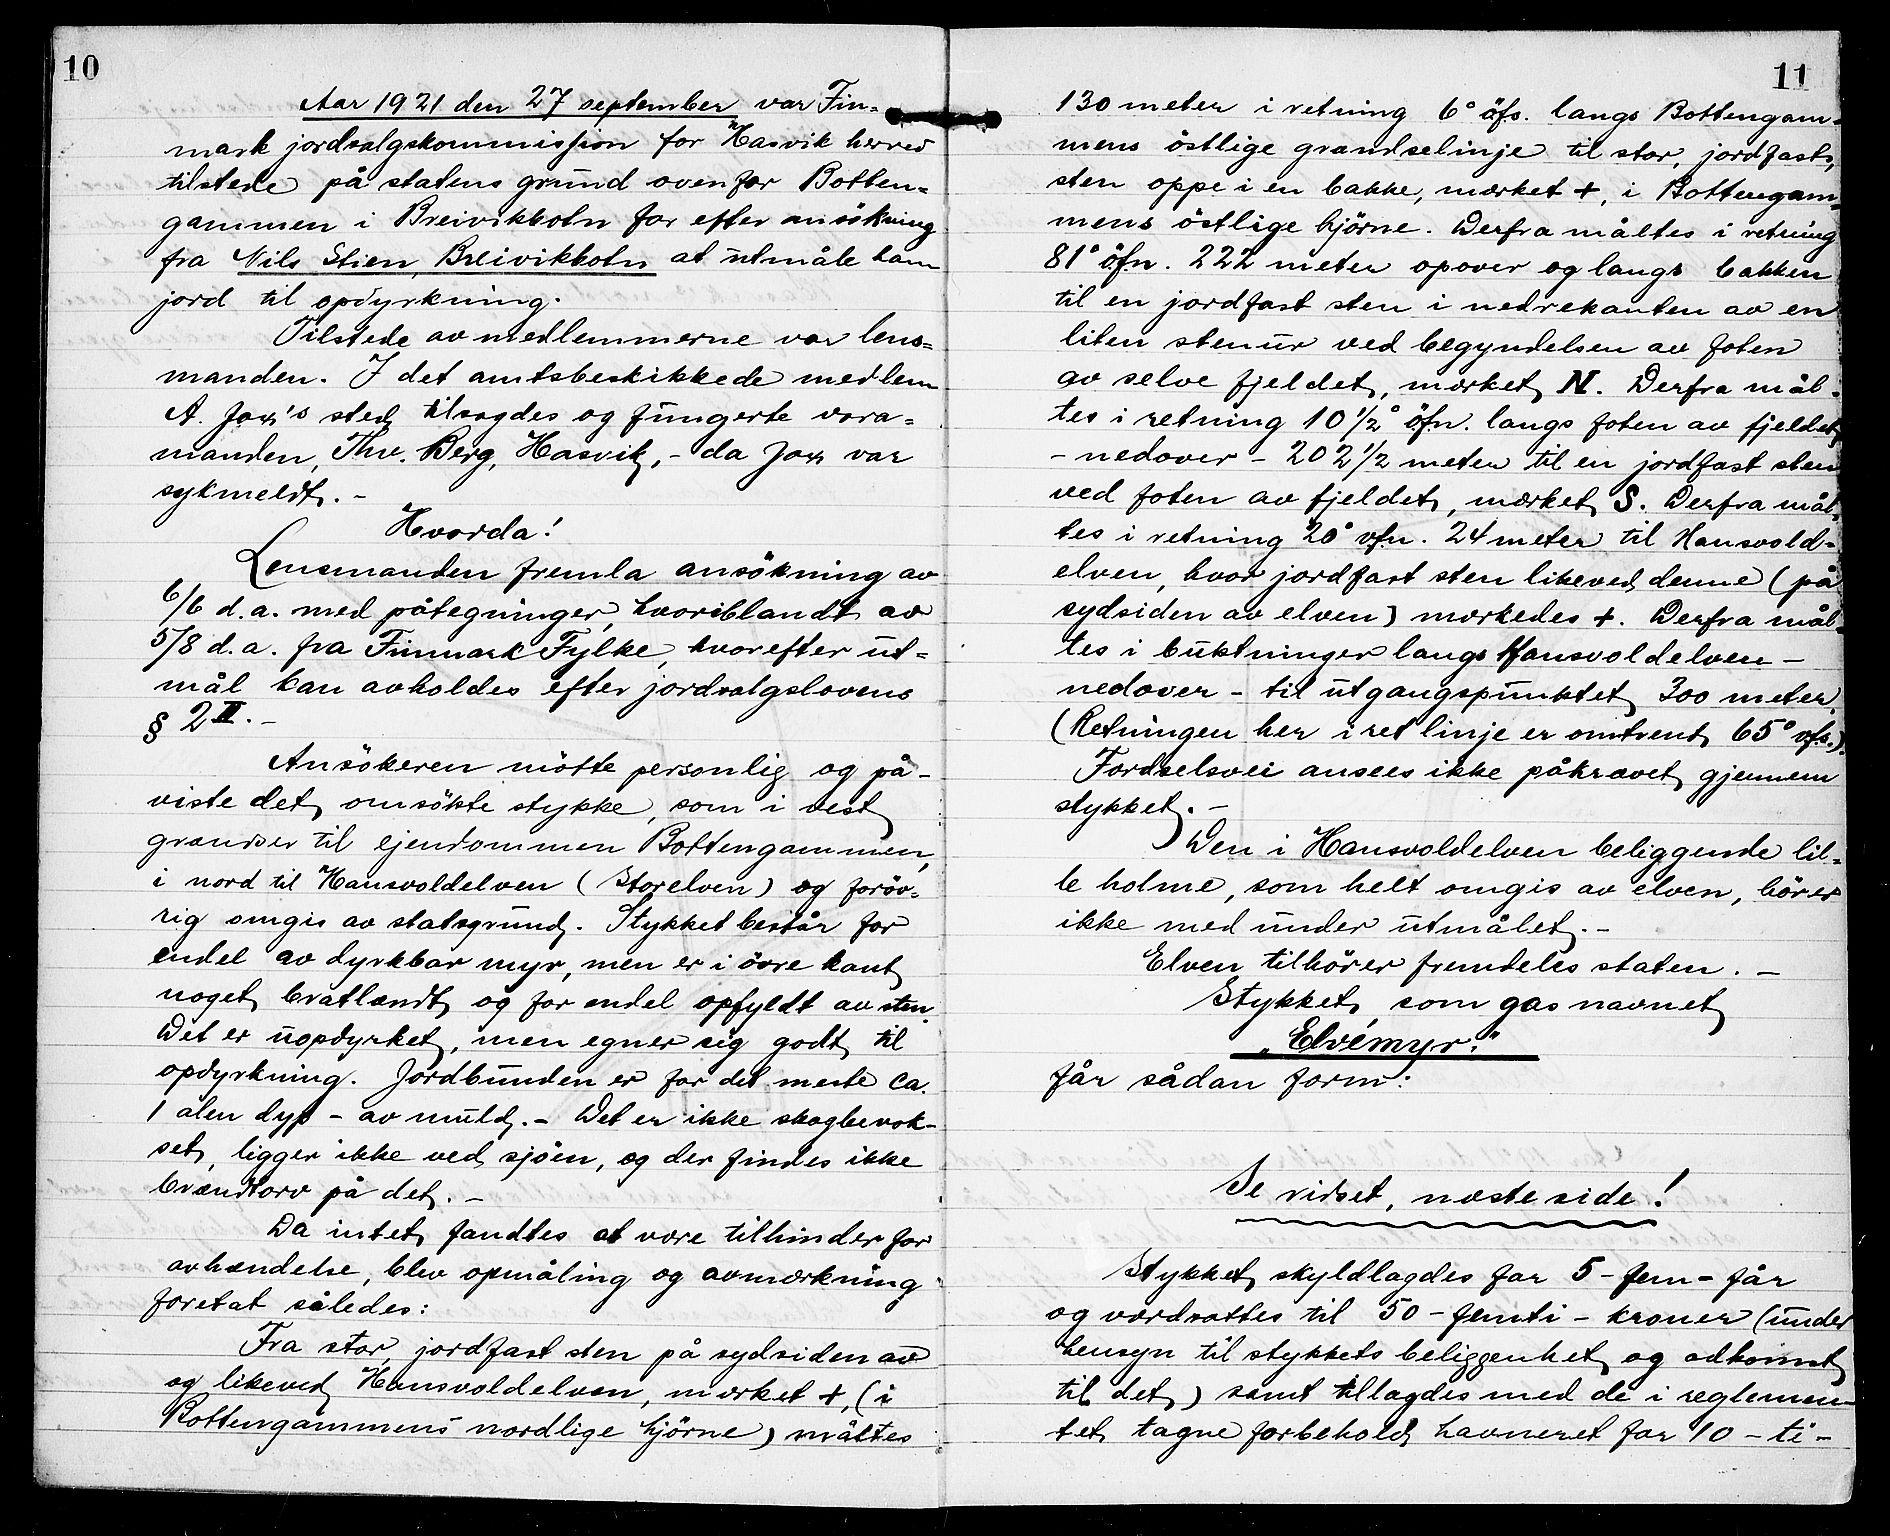 10
Aar 1921 den 27 september var Fin-
mark jordsalgskommission for Hasvik herred
tilstede på statens grund ovenfor Botten-
gammen i Breivikbotn for efter ansökning
fra Nils Stien, Breivikbotn at utmåle ham
jord til opdyrkning.
Tilstede av medlemmerne var lens-
manden. I det amtsbeskikkede medlem
A. Jox's sted tilsagdes og fungerte vara-
manden, Thv. Berg, Hasvik, - da Jox var
sykmeldt. -
Hvorda!
Lensmanden fremla ansökning av
6/6 d.a. med påtegninger, hvoriblandt av
5/8 d.a. fra Finmark Fylke, hvorefter ut-
mål kan avholdes efter jordsalgslovens
§ 2 II. -
Ansökeren mötte personlig og på-
viste det omsökte stykke, som i vest
grændser til ejendommen Bottengammen,
i nord til Hansvoldelven (Storelven) og foröv-
rig omgis av statsgrund. Stykket består for
endel av dyrkbar myr, men er i övre kant
noget bratlændt og for endel opfyldt av sten.
Det er uopdyrket, men egner sig godt til
opdyrkning. Jordbunden er for det meste ca.
1 alen dyp - av muld. - Det er ikke skogbevok-
set, ligger ikke ved sjöen, og der findes ikke
brændtorv på det. -
Da intet fandtes at være tilhinder for
avhændelse, blev opmåling og avmærkning
foretat således:
Fra stor, jordfast sten på sydsiden av
og likeved Hansvoldelven, mærket +, (i
Bottengammens nordlige hjörne) måltes
11
130 meter i retning 6° öfs. langs Bottengam-
mens östlige grændselinje til stor, jordfast
sten oppe i en bakke, mærket +, i Bottengam-
mens östlige hjörne. Derfra måltes i retning
81° öfn. 222 meter opover og langs bakken
til en jordfast sten i nedrekanten av en
liten stenur ved begyndelsen av foten
av selve fjeldet, mærket N. Derfra mål-
tes i retning 10 1/2° öfn. langs foten av fjeldet
- nedover - 202 1/2 meter til en jordfast sten
ved foten av fjeldet, mærket S. Derfra mål-
tes i retning 20° vfn. 24 meter til Hansvold-
elven, hvor jordfast sten likeved denne (på
sydsiden av elven) mærkedes +. Derfra mål-
tes i buktninger langs Hansvoldelven -
nedover - til utgangspunktet 300 meter.
(Retningen her i ret linje er omtrent 65° vfs.).
Færdselsvei ansees ikke påkrævet gjennem
stykket. -
Den i Hansvoldelven beliggende lil-
le holme, som helt omgis av elven, hörer
ikke med under utmålet. -
Elven tilhörer fremdeles staten. -
Stykket, som gas navnet
"Elvemyr."
får sådan form:
Se risset, næste side!
Stykket skyldlagdes for 5 - fem - får
og værdsattes til 50 - femti - kroner (under
hensyn til stykkets beliggenhet og adkomst
til det) samt tillagdes med de i reglemen-
tet tagne forbehold havneret for 10 - ti -